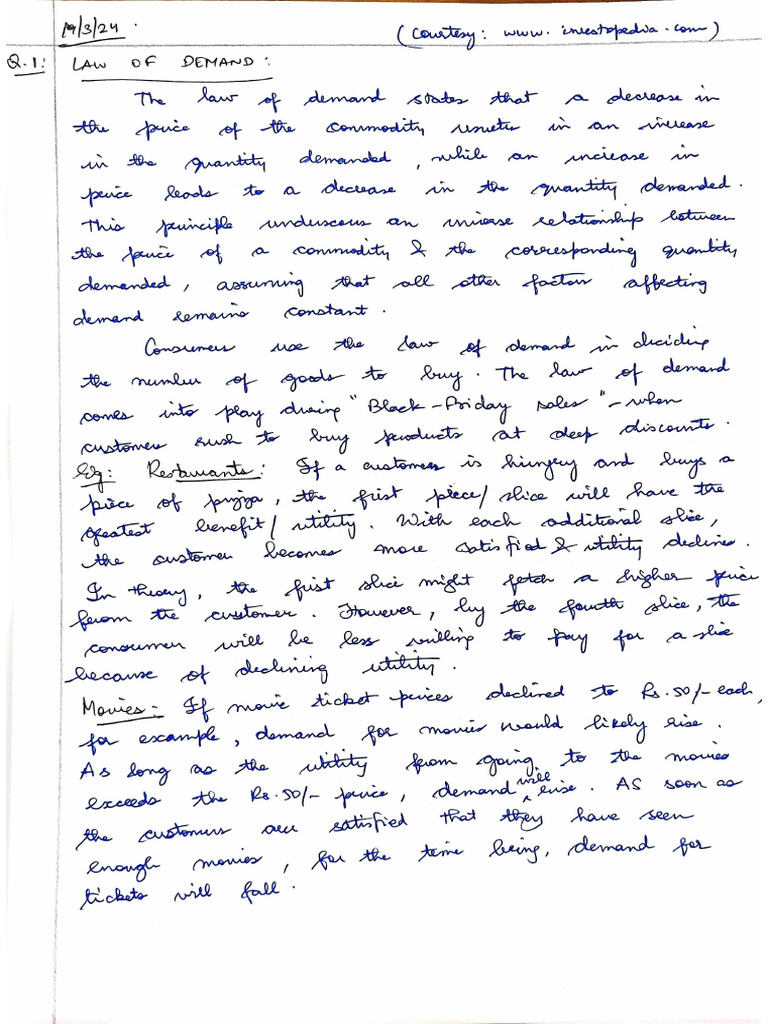 19/3/24. (Courtesy: www.investopedia.com)
Q.1: LAW OF DEMAND:
The law of demand states that a decrease in
the price of the commodity results in an increase
in the quantity demanded, while an increase in
price leads to a decrease in the quantity demanded.
This principle underscores an inverse relationship between
the price of a commodity & the corresponding quantity
demanded, assuming that all other factors affecting
demand remains constant.
Consumers use the law of demand in deciding
the number of goods to buy. The law of demand
comes into play during "Black-Friday sales" - when
customers rush to buy products at deep discounts.
Eg: Restaurants: If a customers is hungry and buys a
piece of pizza, the first piece/slice will have the
greatest benefit/utility. With each additional slice,
the customer becomes more satisfied & utility declines.
In theory, the first slice might fetch a higher price
from the customer. However, by the fourth slice, the
consumer will be less willing to pay for a slice
because of declining utility.
Movies:- If movie ticket prices declined to Rs.50/- each,
for example, demand for movies would likely rise.
As long as the utility from going to the movies
exceeds the Rs.50/- price, demand will rise. As soon as
the customers are satisfied that they have seen
enough movies, for the time being, demand for
tickets will fall.